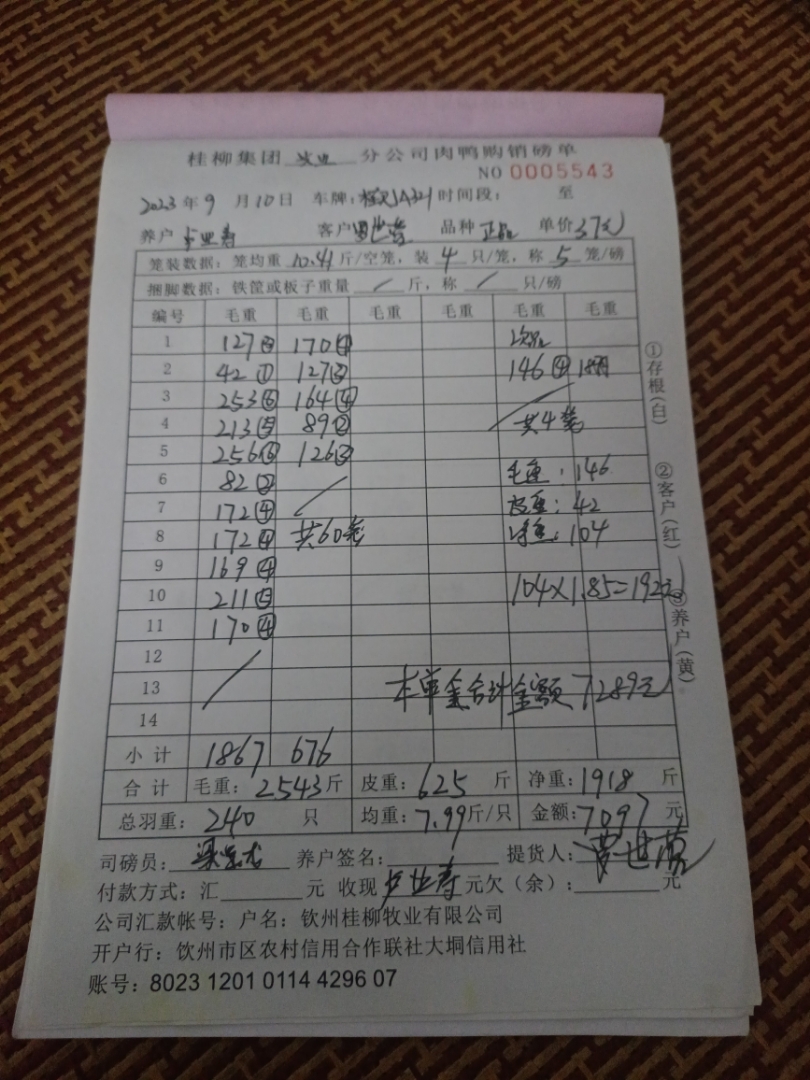 桂柳集团 牧业 分公司肉鸭购销磅单
NO 0005543
2023 年 9 月 10 日 车牌: 时间段: 至
养户 卢业寿 客户 罗世营 品种 正品 单价 3.7元
笼装数据: 笼均重 10.41 斤/空笼, 装 4 只/笼, 称 5 笼/磅
捆脚数据: 铁筐或板子重量 / 斤, 称 / 只/磅
编号 毛重 毛重 毛重 毛重 毛重 毛重
1 127③ 170④ 次品
2 42① 127③ 146④
3 253⑥ 164④
4 213⑤ 89② 共4笼
5 256⑥ 126③
6 82② 毛重: 146
7 172④ 皮重: 42
8 172④ 共60笼 净重: 104
9 169④
10 211⑤ 104×1.85=192元
11 170④
12
13 本单合计金额7289元
14
小计 1867 676
合计 毛重: 2543 斤 皮重: 625 斤 净重: 1918 斤
总羽重: 240 只 均重: 7.99 斤/只 金额: 7097 元
司磅员: 养户签名: 提货人:
付款方式: 汇 元 收现 卢业寿 元欠(余): 元
公司汇款帐号: 户名: 钦州桂柳牧业有限公司
开户行: 钦州市区农村信用合作联社大垌信用社
账号: 8023 1201 0114 4296 07
①存根(白)
②客户(红)
③养户(黄)